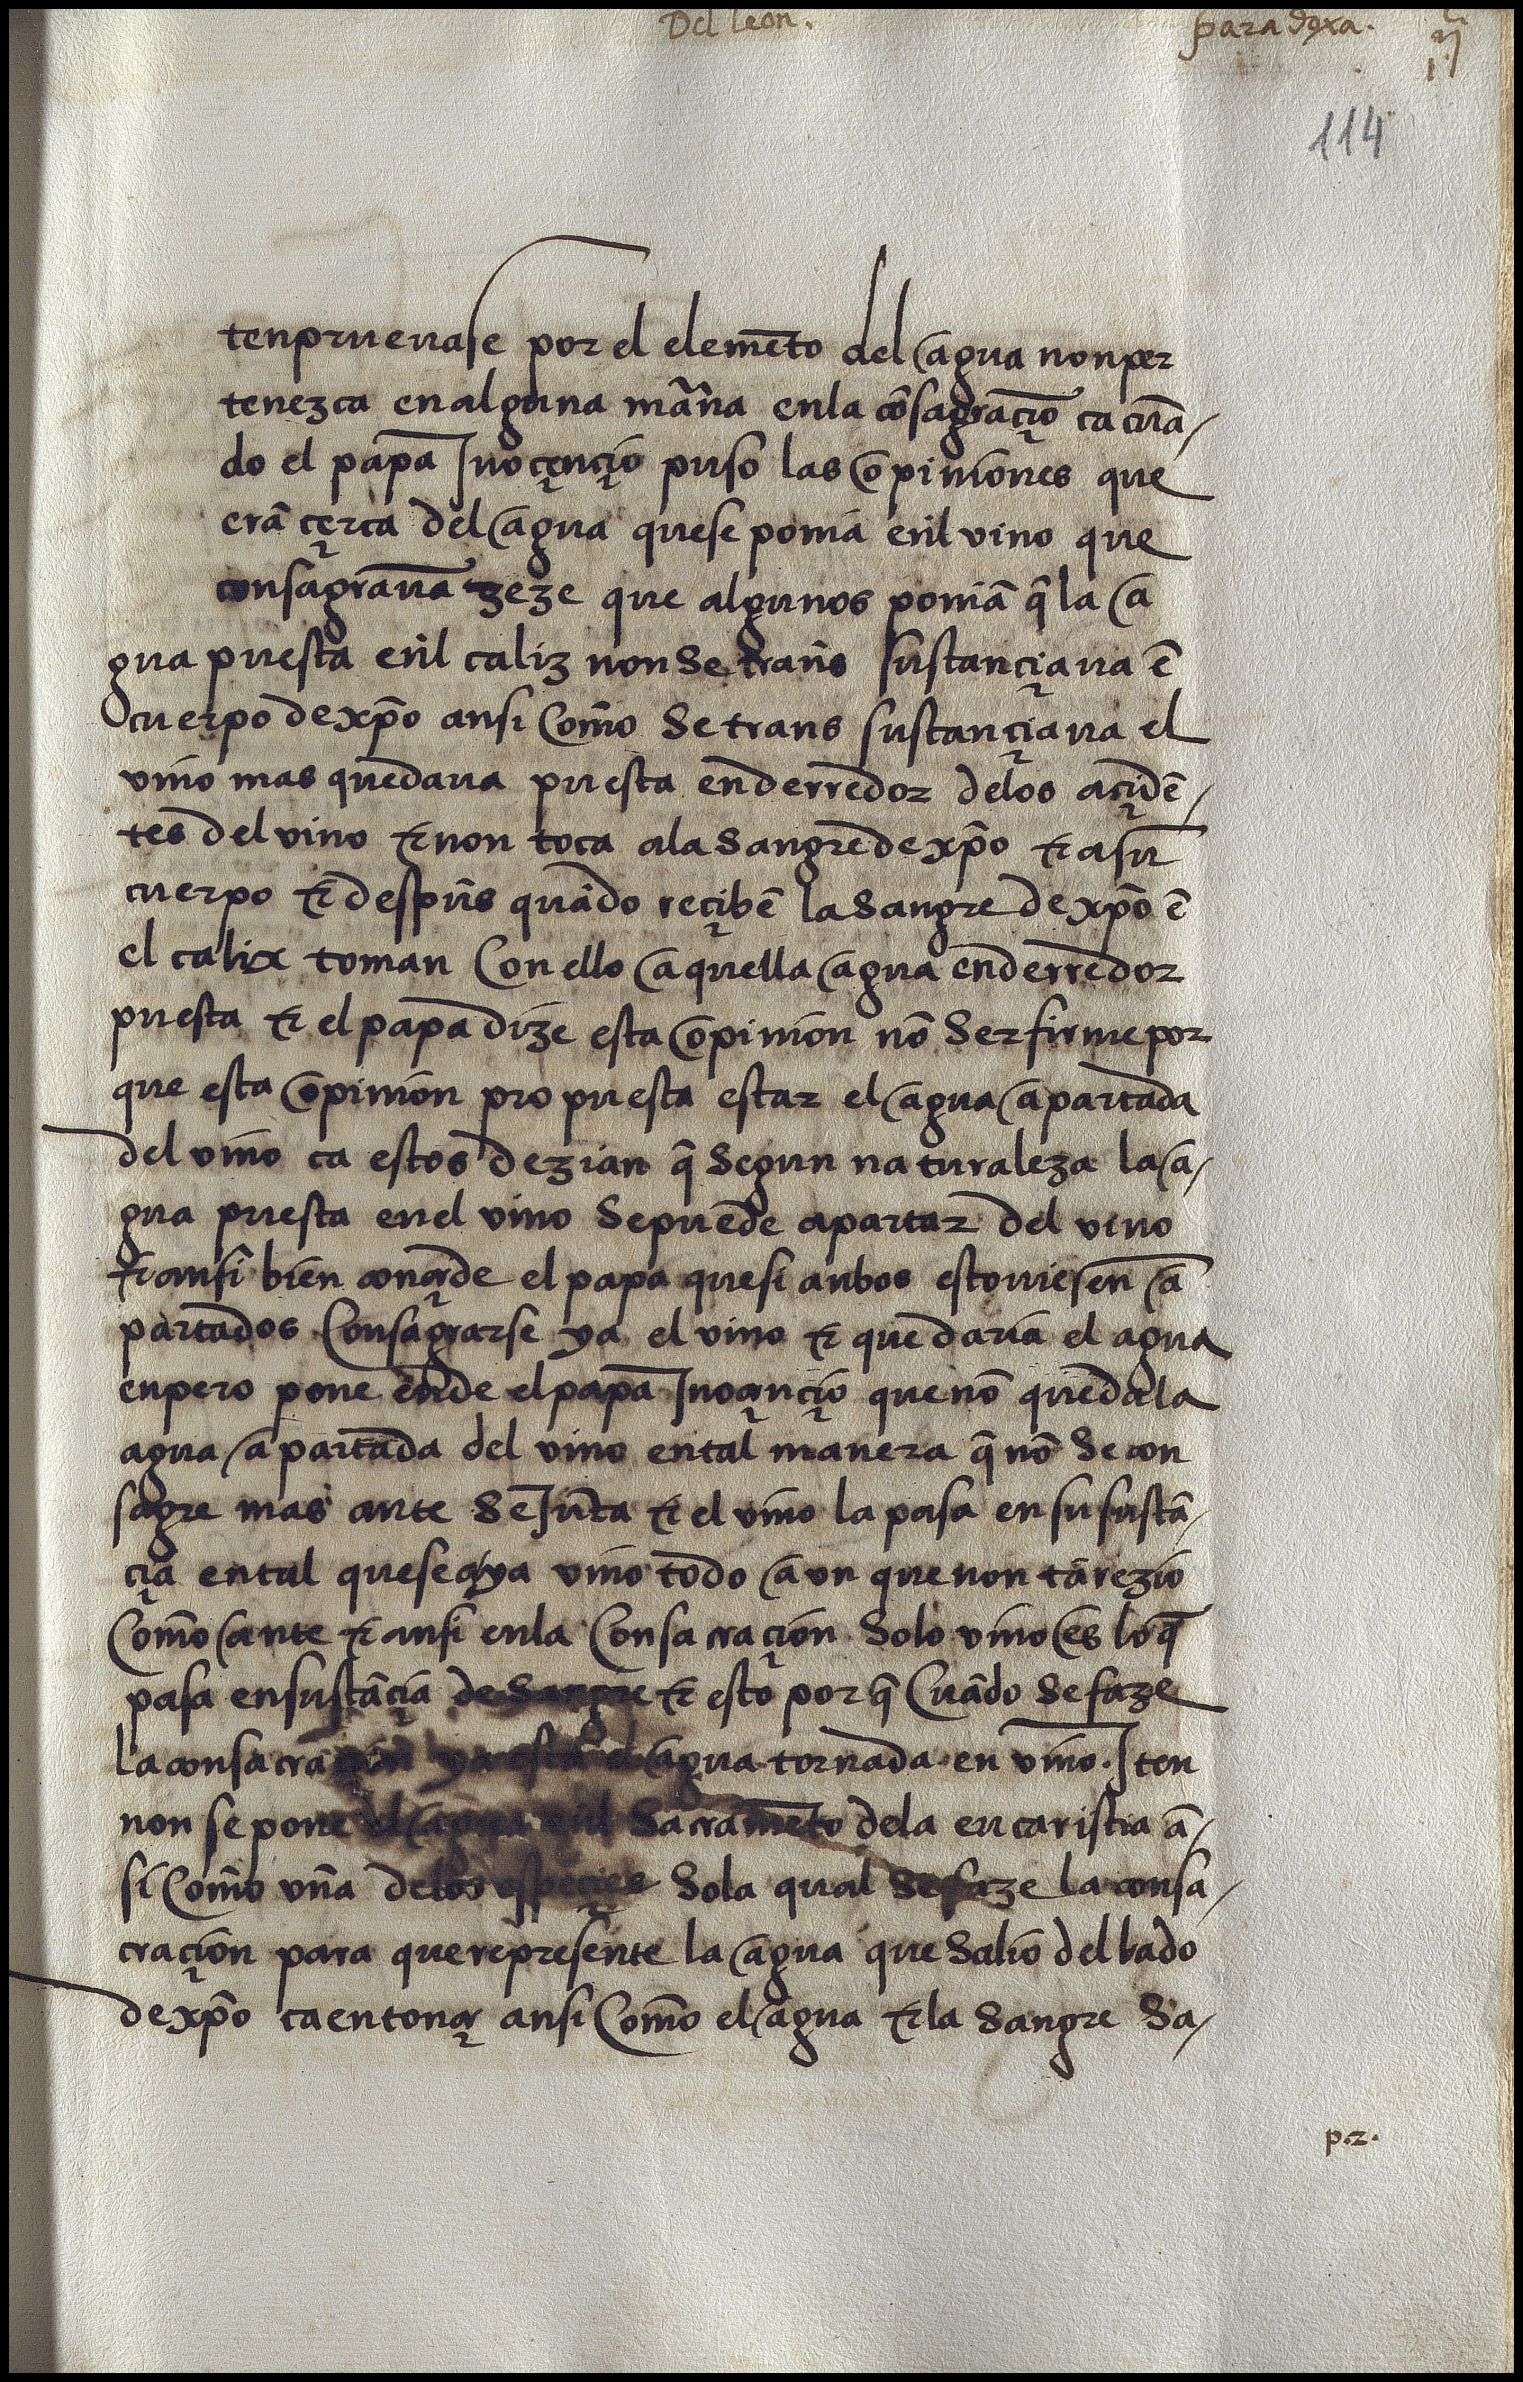 Del leon. paradoxa.
114
ten prueuase por el elemẽto del agua non per
tenezca en alguna mãna en la cõsagraçiõ ca cuã-
do el papa Inoçençio puso las opiniones que
erã çerca del agua que se ponia eñl vino que
consagraua zeze que algunos poniã q̃ la a
gua puesta eñl caliz non se trañs sustançiaua ẽ
cuerpo de xp̃o ansi Com̃o se trans sustançiaua el
vino mas quedaua puesta en derredor delos açidẽ-
tes del vino τ non toca ala sangre de xp̃o τ a su
cuerpo τ desp̃us quãdo reçibẽ la sangre de xp̃o ẽ
el calix toman Con ello aquella agua en derredor
puesta τ el papa dize esta opinion nõ ser firme por
que esta opinion pro puesta estar el agua apartada
del vino ca estos dezian q̃ segun naturaleza la a-
gua puesta en el vino se puede apartar del vino
τ ansi bien conçede el papa que si anbos estouiesen a
partados Consagrarse ya el vino τ quedaria el agua
enpero pone ende el papa Inoçençio que nõ queda la
agua apartada del vino en tal manera q̃ nõ se con
sagre mas ante se Jũta τ el vino la pasa en su sustã-
çia en tal que sea ya vino todo a vn que non tã rezio
Com̃o ante τ ansi en la Consacraçion solo vino es lo q̃
pasa en sustãçia de sangre τ esto por q̃ Cuãdo se faze
la consacraçion ya esta el agua tornada en vino. Iten
non se pone el agua eñl sacramẽto dela eucaristia ã-
si Com̃o vña delos espeçies sola qual se faze la consa-
craçion para que represente la agua que salio del lado
de xp̃o ca entonçe ansi Com̃o el agua τ la sangre sa-
p.2.